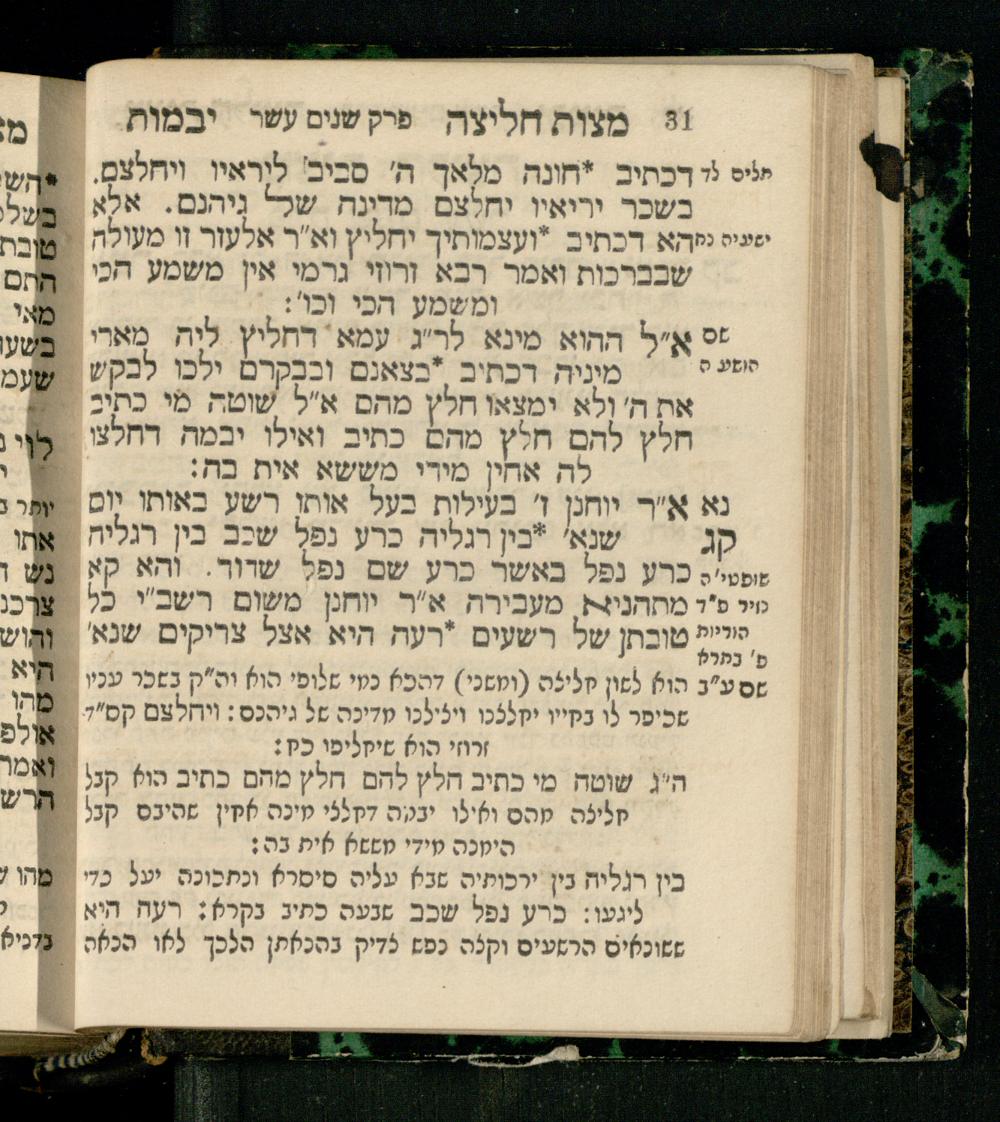 31 מצות חליצה פרק שנים עשר יבמות
תלים לד דכתיב *חונה מלאך ה' סביב ליראיו ויחלצם.
בשכר יריאיו יחלצם מדינה של גיהנם. אלא
ישעיה נח הא דכתיב *ועצמותיך יחליץ וא"ר אלעזר זו מעולה
שבברכות ואמר רבא זרוזי גרמי אין משמע הכי
ומשמע הכי וכו':
שם א"ל ההוא מינא לר"ג עמא דחליץ ליה מארי
הושע ה מיניה דכתיב *בצאנם ובבקרם ילכו לבקש
את ה' ולא ימצאו חלץ מהם א"ל שוטה מי כתיב
חלץ להם חלץ מהם כתיב ואילו יבמה דחלצו
לה אחין מידי מששא אית בה:
נא א"ר יוחנן ז' בעילות בעל אותו רשע באותו יום
קג שנא' *בין רגליה כרע נפל שכב בין רגליה
שופטי' ה כרע נפל באשר כרע שם נפל שדוד. והא קא
נזיר פ"ד מתהניא מעבירה א"ר יוחנן משום רשב"י כל
הוריות טובתן של רשעים *רעה היא אצל צדיקים שנא'
פ' בתרא
שם ע"ב הוא לשון חליצה (ומשני) דהכא כמי שלופי הוא וה"ק בשכר עניו
שכיפר לו בחייו יחלצנו ויצילנו מדינה של גיהנם: ויחלצם קס"ד
זרוזי הוא שיחליפו כח:
ה"ג שוטה מי כתיב חלץ להם חלץ מהם כתיב הוא קבל
חליצה מהם ואילו יבמה דחלצי מינה אחין שהיבם קבל
הימנה מידי מששא אית בה:
בין רגליה בין ירכותיה שבא עליה סיסרא ונתכונה יעל כדי
ליגעו: כרע נפל שכב שבעה כתיב בקרא: רעה היא
ששונאים הרשעים וקצה נפש צדיק בהנאתן הלכך לאו הנאה